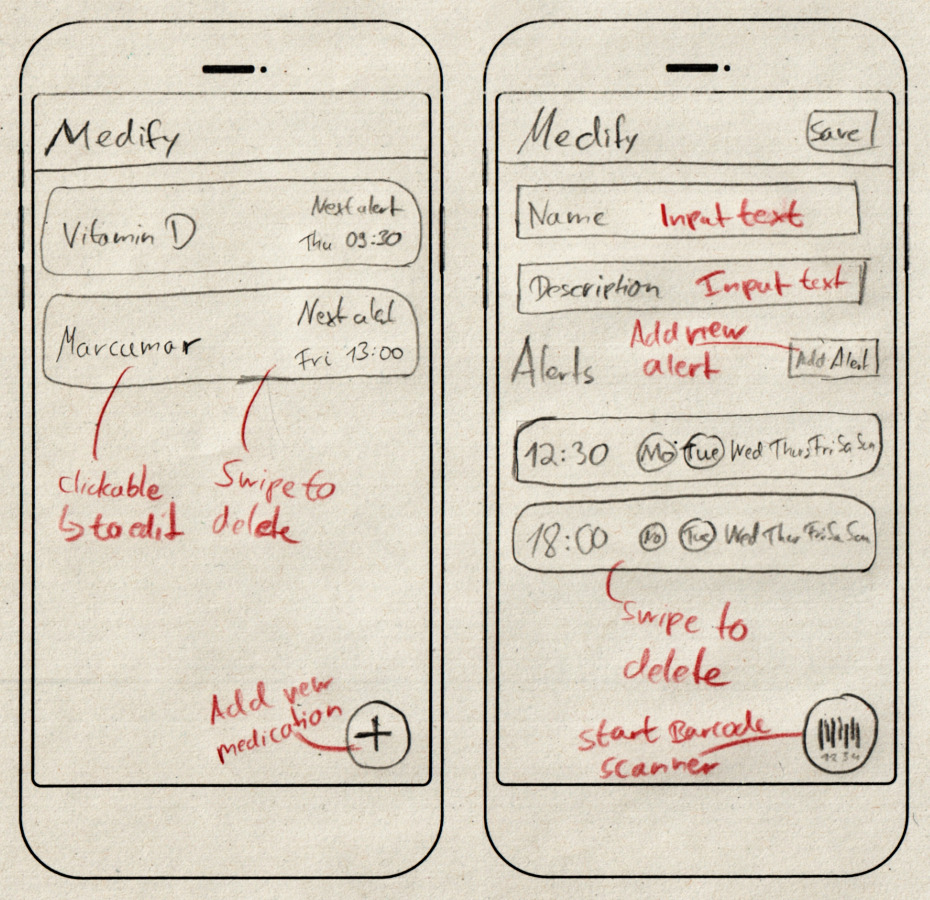 Medify
Vitamin D
Next alert
Thu 09:30
Marcumar
Next alert
Fri 13:00
clickable
↳ to edit
Swipe to
delete
Add new
medication
+
Medify
Save
Name Input text
Description Input text
Alerts
Add new
alert
Add Alert
12:30 Mo Tue Wed Thus Fri Sa Sun
18:00 Mo Tue Wed Thur Fri Sa Sun
Swipe to
delete
Start Barcode
scanner
1234